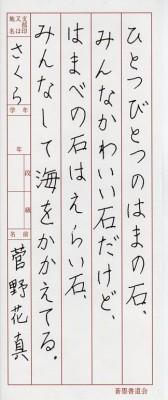 ひとつびとつのはまの石、
みんなかわいい石だけど、
はまべの石はえらい石、
みんなして海をかかえてる。
支部印又は地名 さくら 学年 年 段級 名前 菅野花真
書道会